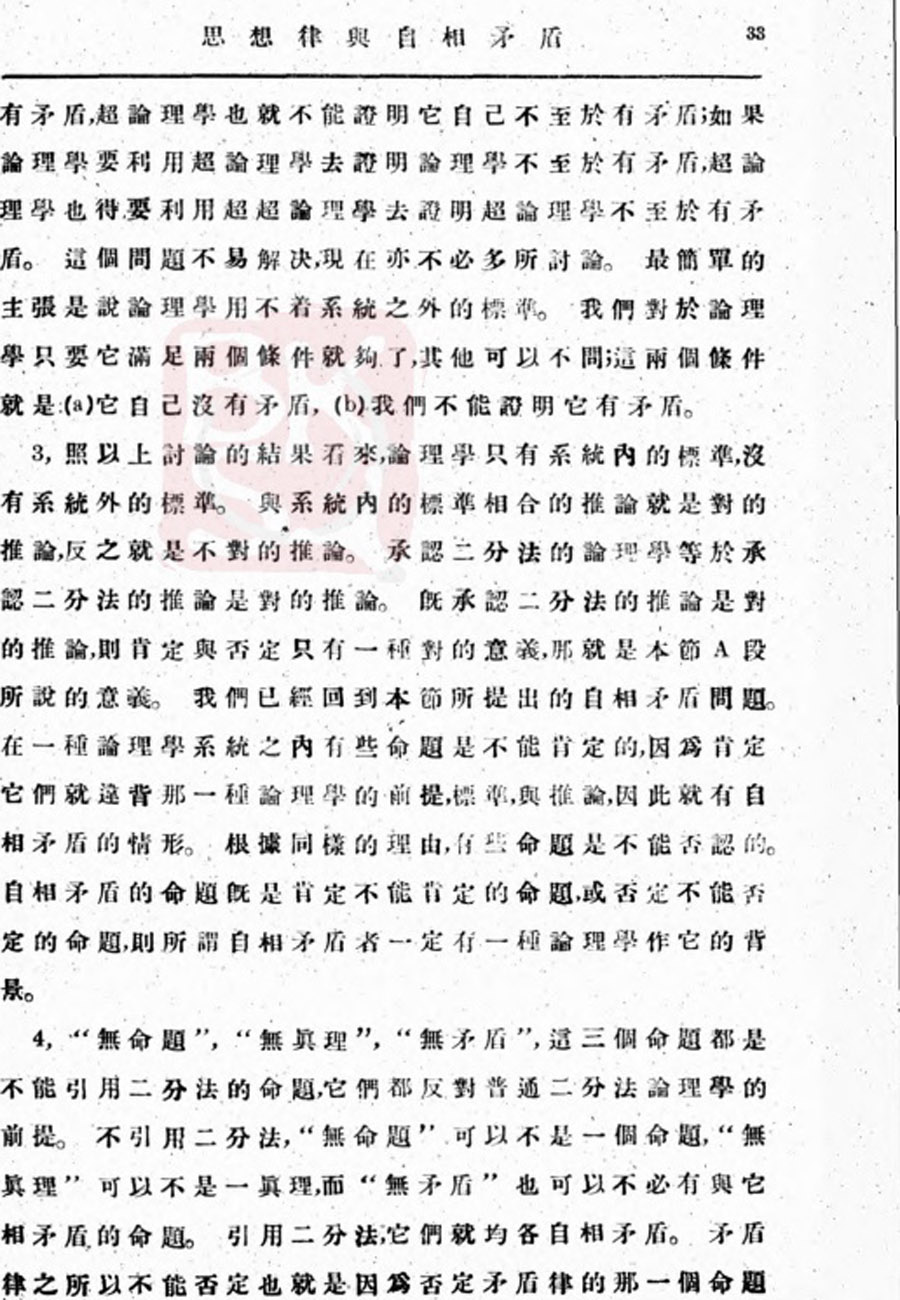 思想律與自相矛盾 33
有矛盾,超論理學也就不能證明它自己不至於有矛盾;如果
論理學要利用超論理學去證明論理學不至於有矛盾,超論
理學也得要利用超超論理學去證明超論理學不至於有矛
盾。 這個問題不易解決,現在亦不必多所討論。 最簡單的
主張是說論理學用不着系統之外的標準。 我們對於論理
學只要它滿足兩個條件就夠了,其他可以不問;這兩個條件
就是:(a)它自己沒有矛盾, (b)我們不能證明它有矛盾。
3, 照以上討論的結果看來,論理學只有系統內的標準,沒
有系統外的標準。 與系統內的標準相合的推論就是對的
推論,反之就是不對的推論。 承認二分法的論理學等於承
認二分法的推論是對的推論。 旣承認二分法的推論是對
的推論,則肯定與否定只有一種對的意義,那就是本節A段
所說的意義。 我們已經回到本節所提出的自相矛盾問題。
在一種論理學系統之內有些命題是不能肯定的,因爲肯定
它們就違背那一種論理學的前提,標準,與推論,因此就有自
相矛盾的情形。 根據同樣的理由,有些命題是不能否認的。
自相矛盾的命題旣是肯定不能肯定的命題,或否定不能否
定的命題,則所謂自相矛盾者一定有一種論理學作它的背
景。
4, “無命題”, “無眞理”, “無矛盾”, 這三個命題都是
不能引用二分法的命題,它們都反對普通二分法論理學的
前提。 不引用二分法, “無命題” 可以不是一個命題, “無
眞理” 可以不是一眞理,而 “無矛盾” 也可以不必有與它
相矛盾的命題。 引用二分法,它們就均各自相矛盾。 矛盾
律之所以不能否定也就是因爲否定矛盾律的那一個命題